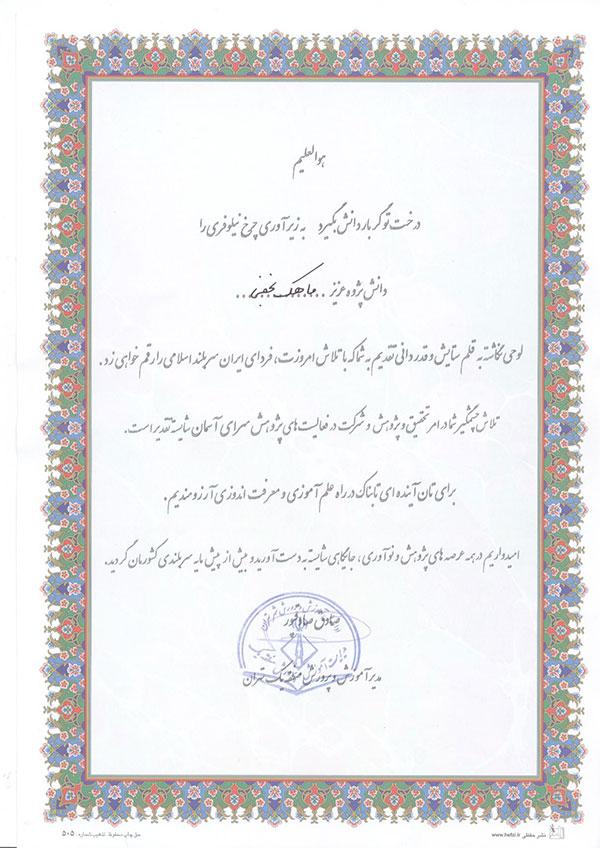 هوالعلیم
درخت تو گر بار دانش بگیرد به زیر آوری چرخ نیلوفری را
دانش پژوه عزیز ..ماهک نجفی...
لوحی نگاشته به قلم ستایش و قدردانی تقدیم به شما که با تلاش امروزت، فردای ایران سربلند اسلامی را رقم خواهی زد.
تلاش چشمگیر شما در امر تحقیق و پژوهش و شرکت در فعالیت های پژوهش سرای آسمان شایسته تقدیر است.
برای تان آینده ای تابناک در راه علم آموزی و معرفت اندوزی آرزومندیم.
امیدواریم در همه عرصه های پژوهش و نوآوری، جایگاهی شایسته به دست آورید و بیش از پیش مایه سربلندی کشورمان گردید.
صادق صادقپور
مدیر آموزش و پرورش منطقه یک تهران
حق چاپ محفوظ. تذهیب شماره: ۵۰۵
www.hefzi.ir نشر حفظی